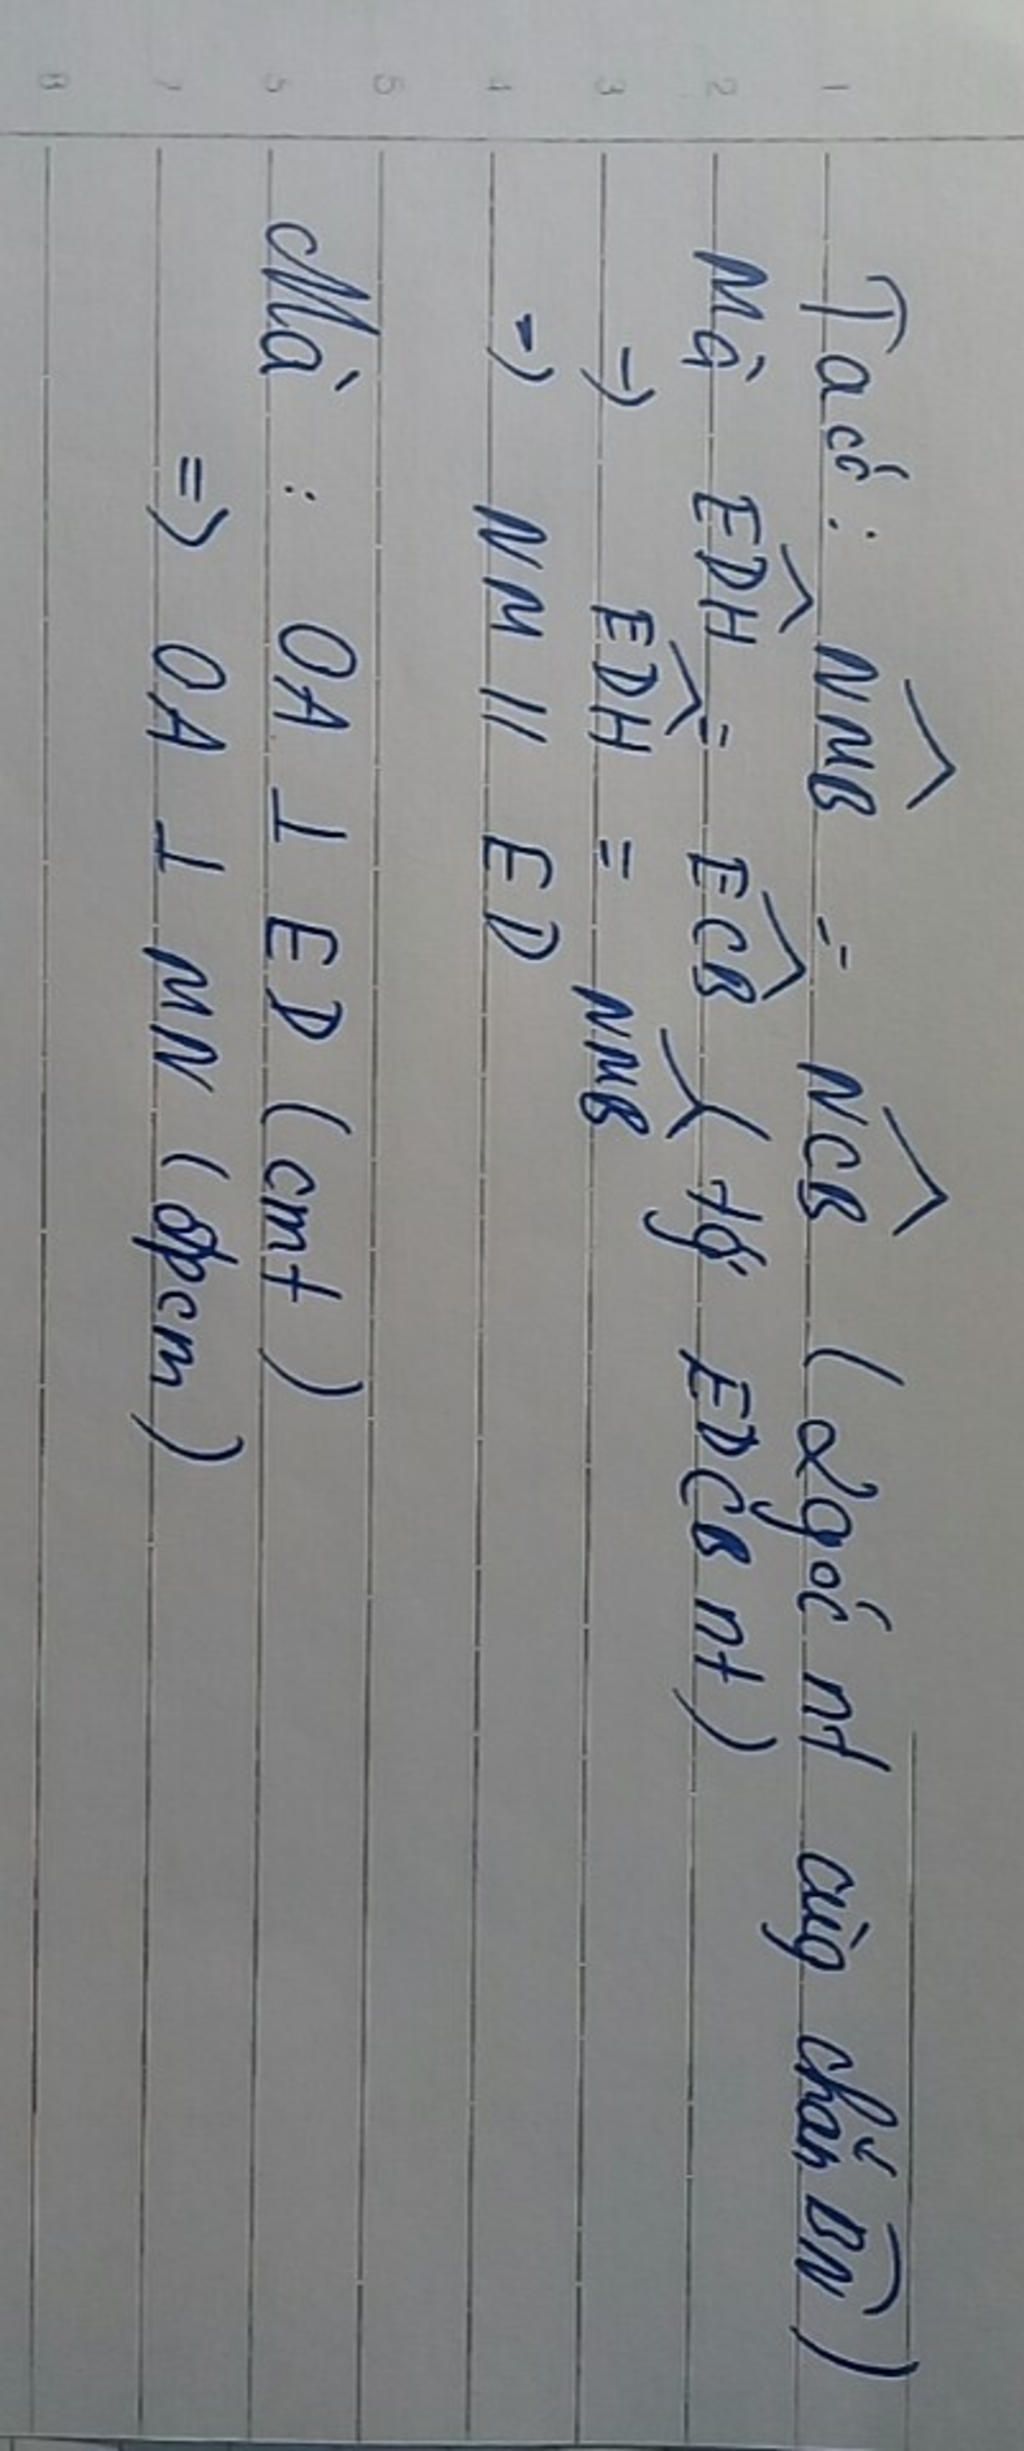 1 Ta có: \widehat{NMB} = \widehat{NCB} (2 góc nt cùng chắn \overset{\frown}{BN})
2 Mà \widehat{EDH} = \widehat{ECB} (tg EDCB nt)
3 => \widehat{EDH} = \widehat{NMB}
4 => NM // ED
5
Mà : OA ⊥ ED (cmt)
7 => OA ⊥ MN (đpcm)
8